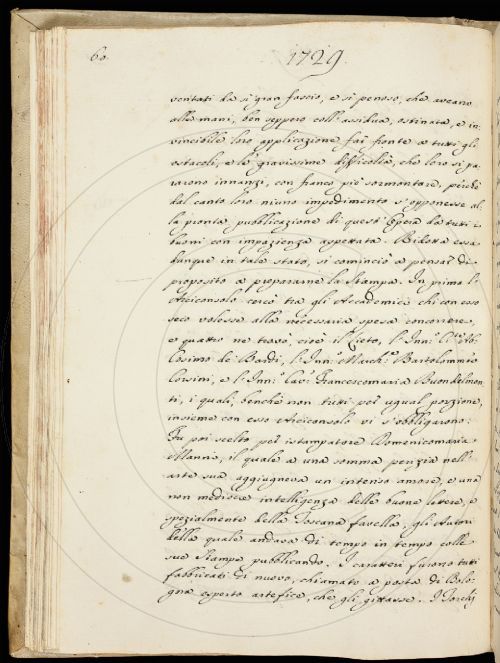 60. 1729.
ventati da sì gran fascio, e sì penoso, che aveano
alle mani, ben seppero coll'assidua, ostinata, e in-
vincibile loro applicazione far fronte a tutti gli
ostacoli, e le gravissime difficoltà, che loro si pa-
rarono innanzi, con franco piè sormontare, perchè
dal canto loro niuno impedimento s'opponesse al-
la pronta pubblicazione di quest'Opera da tutti i
buoni con impazienza aspettata. Ridotta essa
dunque in tale stato, si cominciò a pensar di
proposito a prepararne la Stampa. In prima l'
Arciconsolo cercò tra gli Accademici chi con esso
seco volesse alla necessaria spesa concorrere,
e quattro ne trovò, cioè il Lieto, l'Inn.º
Cosimo de' Bardi, l'Inn.º March.e Bartolommeo
Corsini, e l'Inn.º Cav.e Francescomaria Buondelmon-
ti, i quali, benchè non tutti per ugual porzione,
insieme con esso Arciconsolo vi s'obbligarono.
Fu poi scelto per istampatore Domenicomaria
Manni, il quale a una somma perizia nell'
arte sua aggiugneva un intenso amore, e una
non mediocre intelligenza delle buone lettere, e
spezialmente della Toscana favella, gli Autori
della quale andava di tempo in tempo colle
sue Stampe pubblicando. I caratteri furono tutti
fabbricati di nuovo, chiamato a posta di Bolo-
gna esperto artefice, che gli gittasse. I Torchj